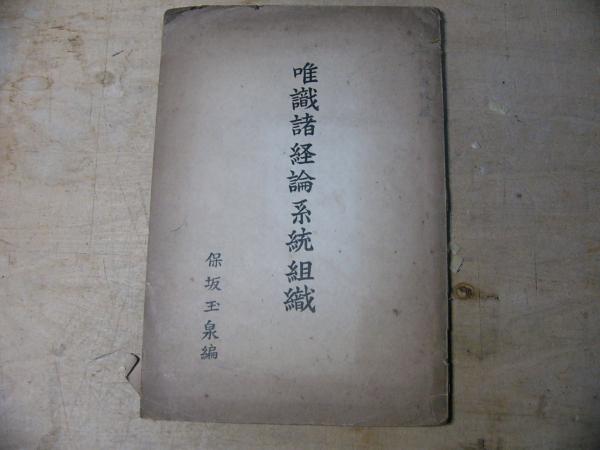 唯識諸経論系統組織
保坂玉泉編